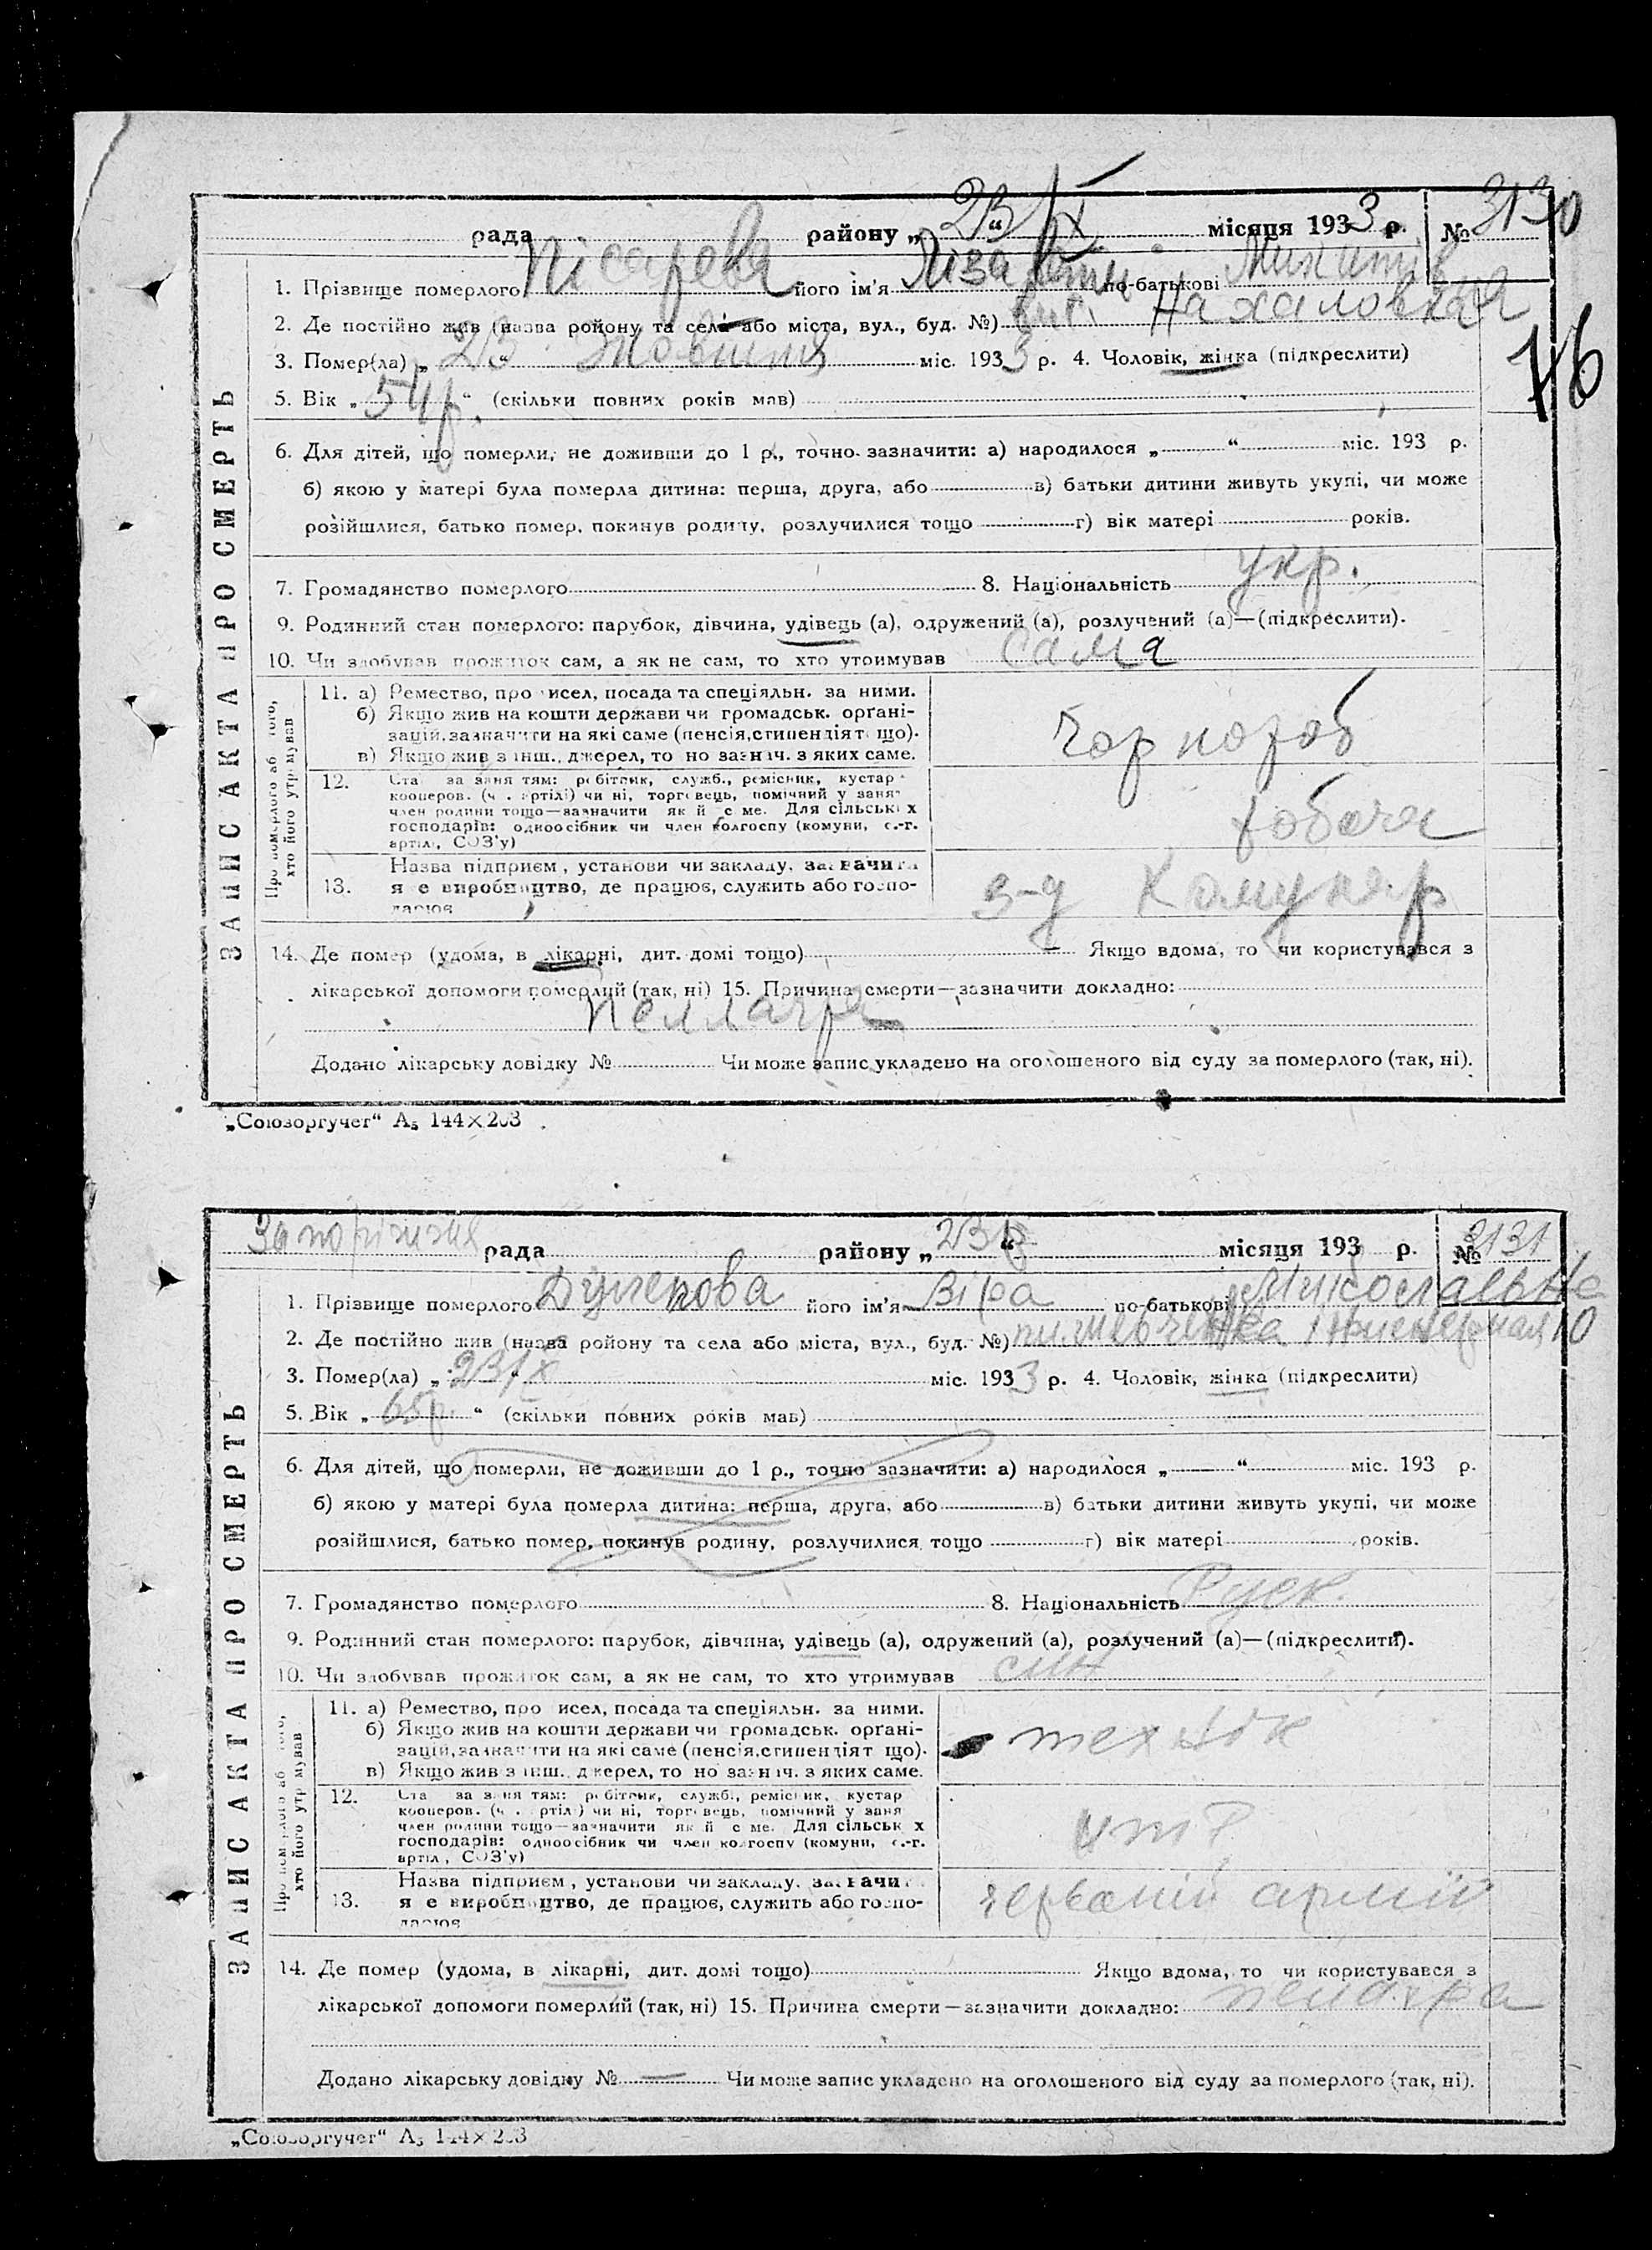 рада району „23/X“ місяця 1933 р. № 3130
1. Прізвище померлого Пісарева його ім'я Лізавета по-батькові Микитів
2. Де постійно жив (назва ройону та села або міста, вул., буд. №) Нахаловка
3. Помер(ла) „23“ жовтня міс. 1933 р. 4. Чоловік, жінка (підкреслити)
76
5. Вік „54 р.“ (скільки повних років мав)
6. Для дітей, що померли, не доживши до 1 р., точно зазначити: а) народилося „ “ міс. 193 р.
б) якою у матері була померла дитина: перша, друга, або в) батьки дитини живуть укупі, чи може
розійшлися, батько помер, покинув родину, розлучилися тощо г) вік матері років.
7. Громадянство померлого 8. Національність укр.
9. Родинний стан померлого: парубок, дівчина, удівець (а), одружений (а), розлучений (а)—(підкреслити).
10. Чи здобував прожиток сам, а як не сам, то хто утримував сама
ЗАПИС АКТА ПРО СМЕРТЬ
Про померлого або того,
хто його утримував
11. а) Ремество, про исел, посада та спеціяльн. за ними.
б) Якщо жив на кошти держави чи громадськ. орґані-
зацій, зазначити на які саме (пенсія, стипендіят що).
в) Якщо жив з інш., джерел, то но зазнач. з яких саме.
Чорнороб
12. Ста за заня тям: робітник, служб., ремісник, кустар
кооперов. (ч . артілі) чи ні, торговець, помічний у заня
член родини тощо—зазначити як й с ме. Для сільськ х
господарів: одноосібник чи член колгоспу (комуни, с.-г.
артілі, СОЗ'у)
робоча
13. Назва підприєм , установи чи закладу, зазначити
я е виробництво, де працює, служить або госпо-
дарює
з-д Комунар
14. Де помер (удома, в лікарні, дит. домі тощо) Якщо вдома, то чи користувався з
лікарської допомоги померлий (так, ні) 15. Причина смерти—зазначити докладно:
Пеллагра
Додано лікарську довідку № Чи може запис укладено на оголошеного від суду за померлого (так, ні).
„Союзоргучет“ А5 144×203
Запоріжжя рада району „23/X“ місяця 193 р. № 3131
1. Прізвище померлого його ім'я Віра по-батькові Миколаевна
2. Де постійно жив (назва ройону та села або міста, вул., буд. №) пи. Шевченка Інженерная 10
3. Помер(ла) „23/X“ міс. 1933 р. 4. Чоловік, жінка (підкреслити)
5. Вік „65 р.“ (скільки повних років мав)
6. Для дітей, що померли, не доживши до 1 р., точно зазначити: а) народилося „ “ міс. 193 р.
б) якою у матері була померла дитина: перша, друга, або в) батьки дитини живуть укупі, чи може
розійшлися, батько помер, покинув родину, розлучилися тощо г) вік матері років.
7. Громадянство померлого 8. Національність Руск.
9. Родинний стан померлого: парубок, дівчина, удівець (а), одружений (а), розлучений (а)—(підкреслити).
10. Чи здобував прожиток сам, а як не сам, то хто утримував син
ЗАПИС АКТА ПРО СМЕРТЬ
Про померлого або того,
хто його утримував
11. а) Ремество, про исел, посада та спеціяльн. за ними.
б) Якщо жив на кошти держави чи громадськ. орґані-
зацій, зазначити на які саме (пенсія, стипендіят що).
в) Якщо жив з інш., джерел, то но зазнач. з яких саме.
технік
12. Ста за заня тям: робітник, служб., ремісник, кустар
кооперов. (ч . артілі) чи ні, торговець, помічний у заня
член родини тощо—зазначити як й с ме. Для сільськ х
господарів: одноосібник чи член колгоспу (комуни, с.-г.
артіл , СОЗ'у)
итр
13. Назва підприєм , установи чи закладу, зазначити
я е виробництво, де працює, служить або госпо-
дарює
червоній армії
14. Де помер (удома, в лікарні, дит. домі тощо) Якщо вдома, то чи користувався з
лікарської допомоги померлий (так, ні) 15. Причина смерти—зазначити докладно: пелагра
Додано лікарську довідку № — Чи може запис укладено на оголошеного від суду за померлого (так, ні).
„Союзоргучет“ А5 144×203